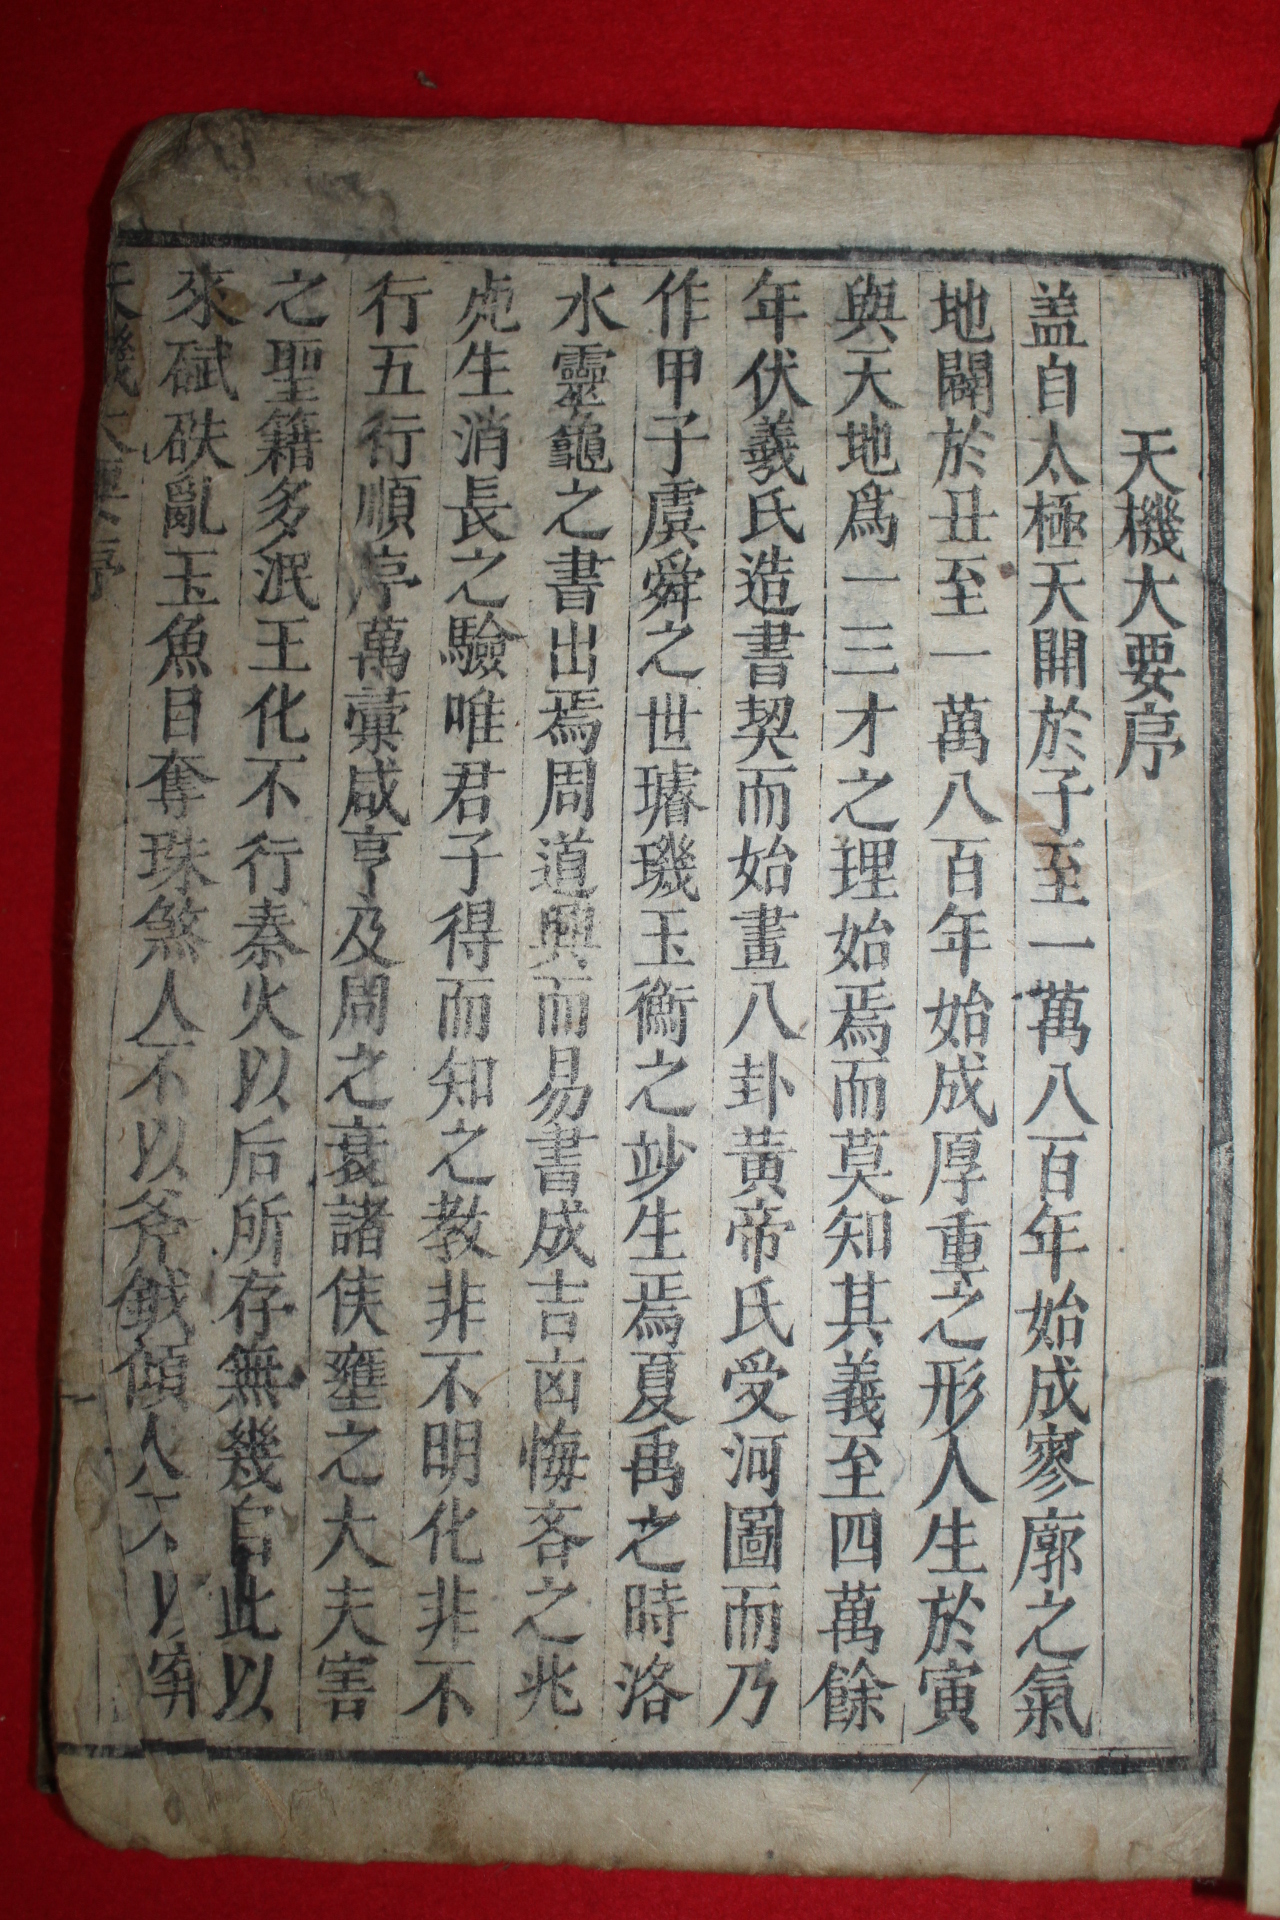 天機大要序
盖自太極天開於子至一萬八百年始成寥廓之氣
地闢於丑至一萬八百年始成厚重之形人生於寅
與天地爲一三才之理始焉而莫知其義至四萬餘
年伏羲氏造書契而始畫八卦黃帝氏受河圖而乃
作甲子虞舜之世璿璣玉衡之妙生焉夏禹之時洛
水靈龜之書出焉周道興而易書成吉凶悔吝之兆
處生消長之驗唯君子得而知之教非不明化非不
行五行順序萬彙咸亨及周之衰諸侯壅之大夫害
之聖籍多泯王化不行秦火以后所存無幾自此以
來碔砆亂玉魚目奪珠煞人不以斧鉞傾人不以穽
天機大要序